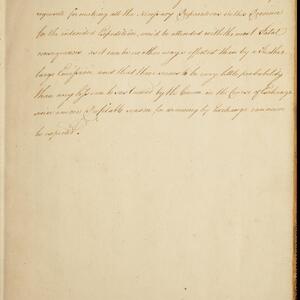 requisite for making all the necessary Preparations in this Province
for the intended Expedition, must be attended with the most fatal
consequences as it can be no other ways effected than by a further
large Emission and that there seems to be very little probability
than any loss can be sustained by the Crown in the Course of Exchange
since a more Profitable season for drawing by Exchange can never
be expected.